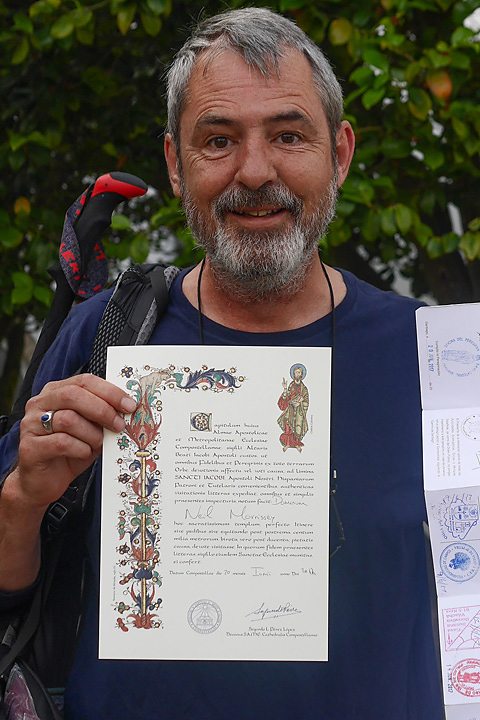 Capitulum huius
Almae Apostolicae
et Metropolitanae Ecclesiae
Compostellanae sigilli Altaris
Beati Jacobi Apostoli custos, ut
omnibus Fidelibus et Peregrinis ex toto terrarum
Orbe, devotionis affectu vel voti causa, ad limina
SANCTI IACOBI Apostoli Nostri Hispaniarum
Patroni et Tutelaris convenientibus, authenticas
visitationis litteras expediat, omnibus et singulis
praesentes inspecturis notum facit: Dominum
Neil Morrissey
hoc sacratissimum templum, perfecto Itinere
sive pedibus sive equitando post postrema centum
milia metrorum, birota vero post ducenta, pietatis
causa, devote visitasse. In quorum fidem praesentes
litteras, sigillo eiusdem Sanctae Ecclesiae munitas,
ei confero.
Datum Compostellae die 20 mensis Iunii anno Dni
Segundo L. Pérez López
Decanus S.A.M.E. Cathedralis Compostellanae